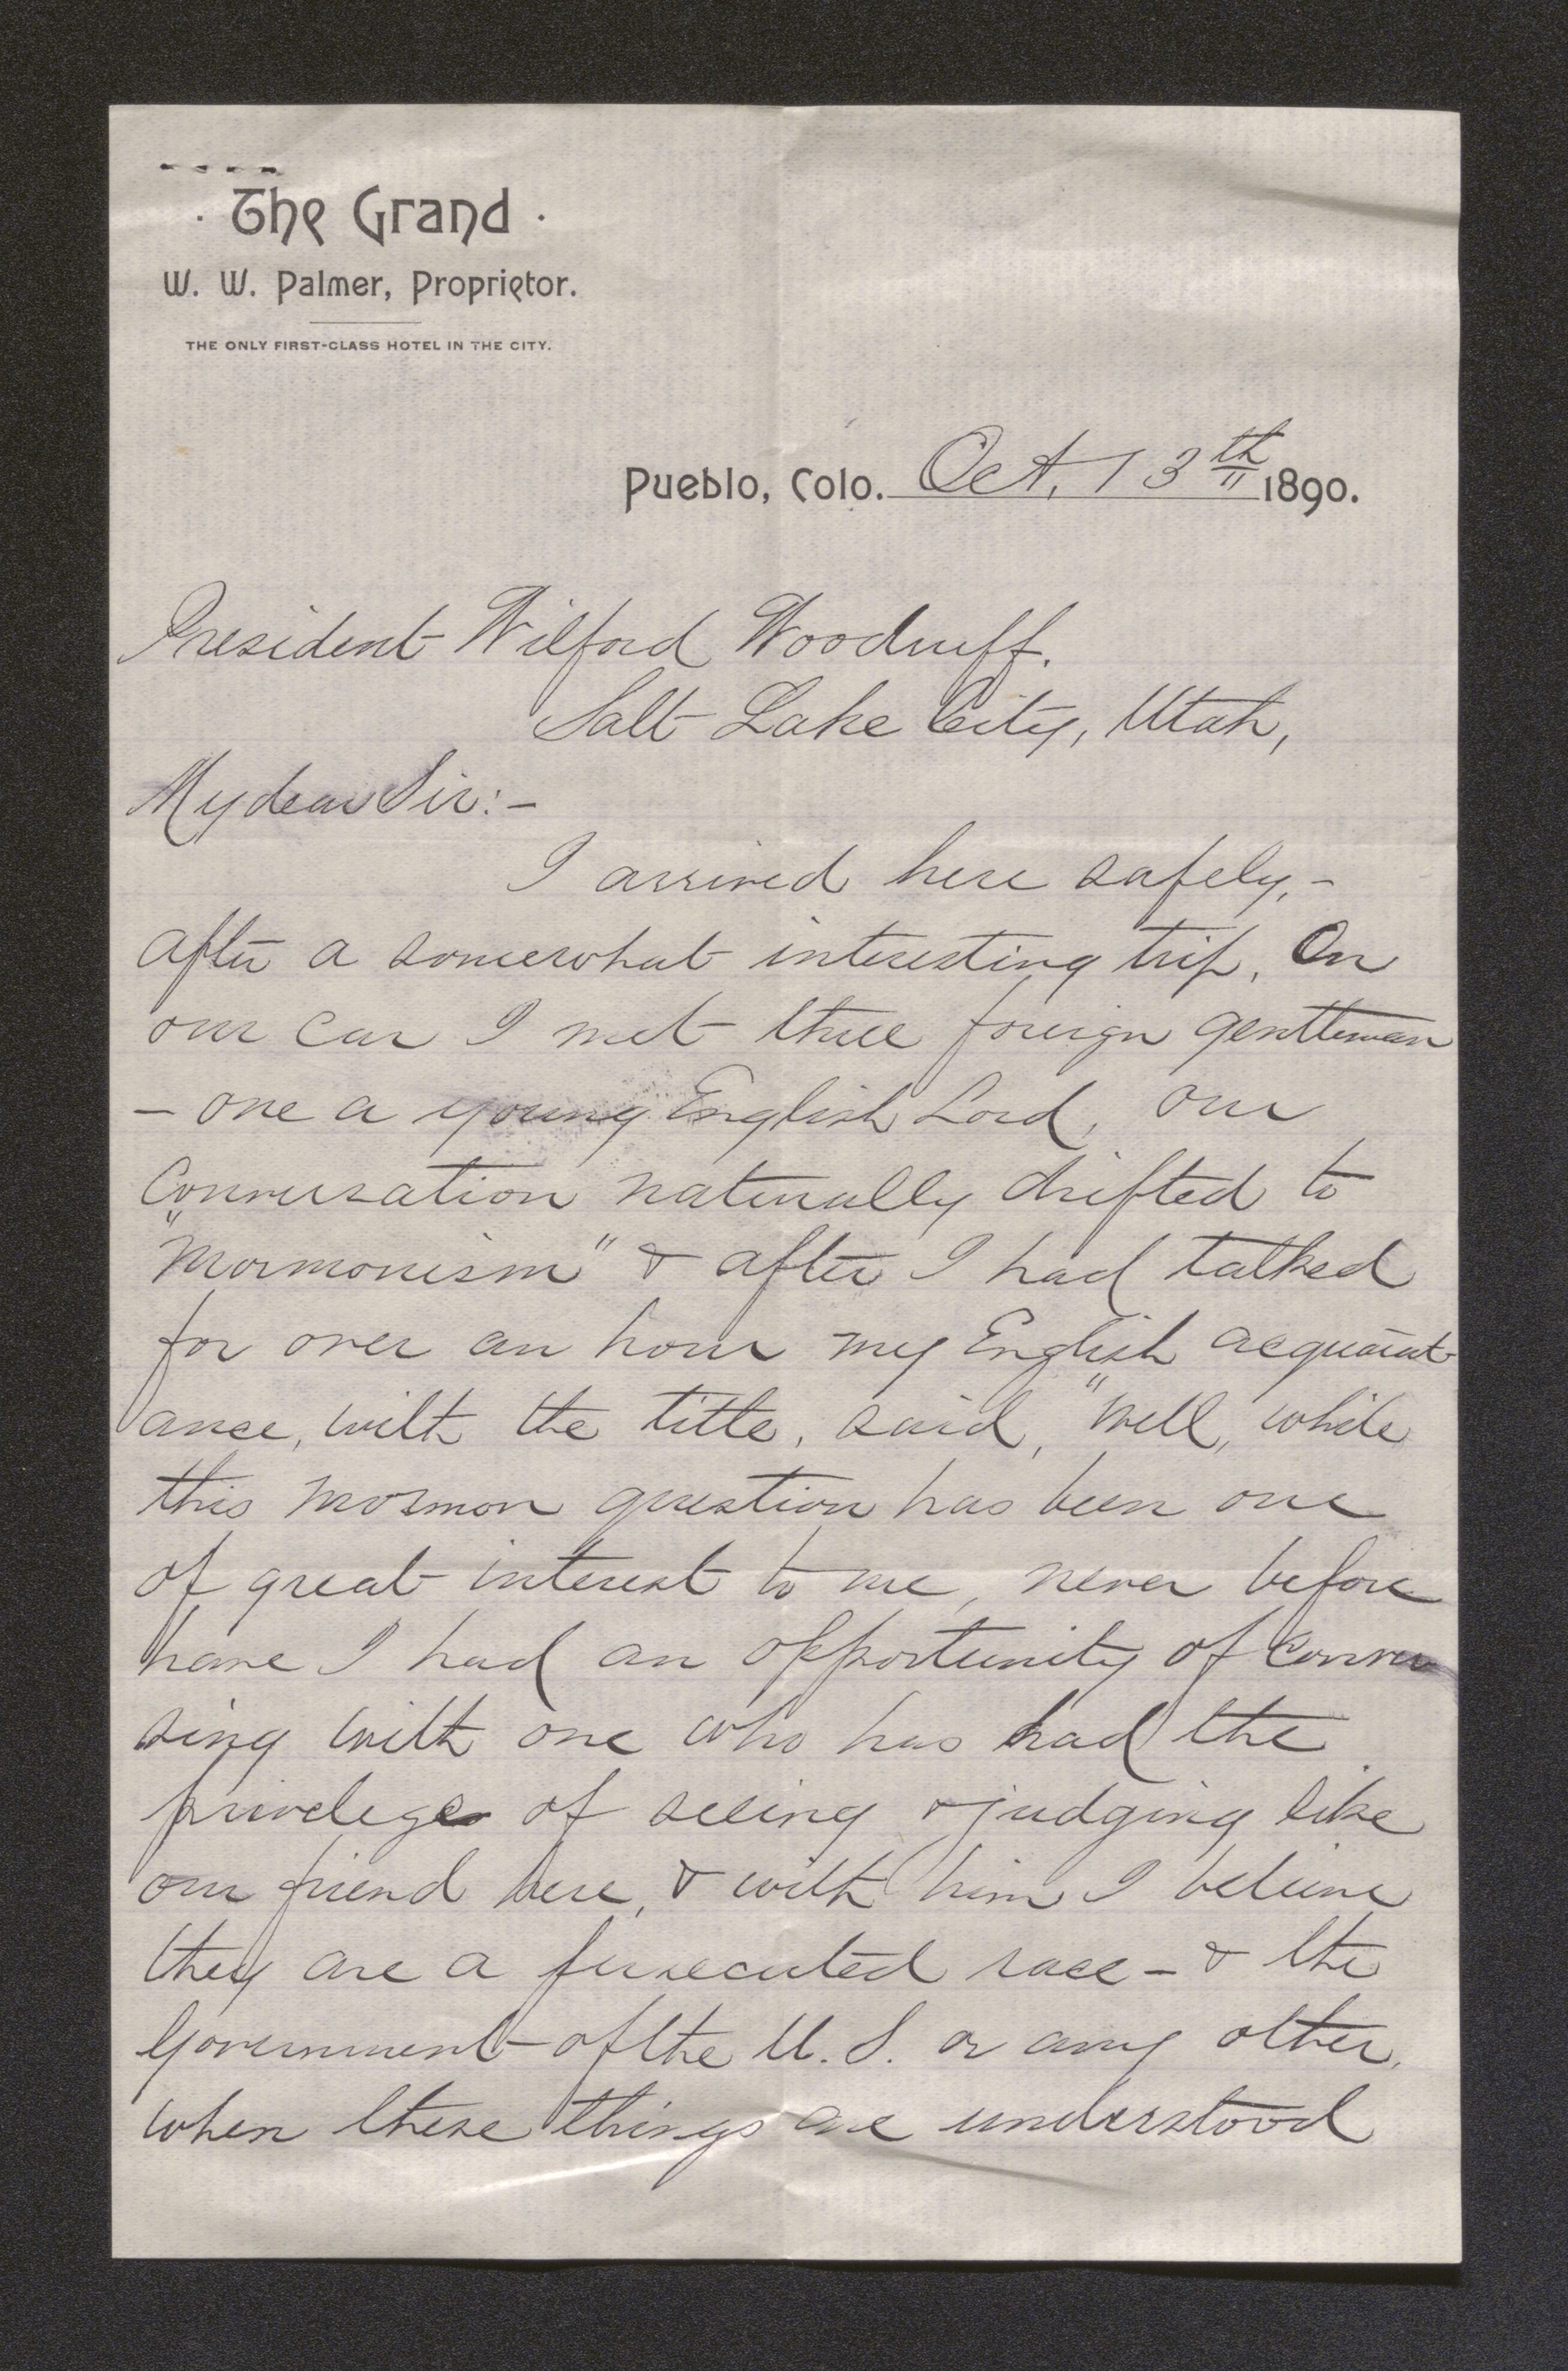 · The Grand ·
W. W. Palmer, Proprietor.
THE ONLY FIRST-CLASS HOTEL IN THE CITY.
Pueblo, Colo. Oct. 13th 1890.
President Wilford Woodruff.
Salt Lake City, Utah,
My dear Sir:-
I arrived here safely,-
after a somewhat interesting trip. On
our car I met three foreign gentleman
- one a young English Lord, our
conversation naturally drifted to
"Mormonism" & after I had talked
for over an hour my English acquaint-
ance, with the title, said, "Well, while
this Mormon question has been one
of great interest to me, never before
have I had an opportunity of conver
sing with one who has had the
privelege of seeing & judging like
our friend here, & with him I believe
they are a persecuted race - & the
Government of the U. S. or any other,
when these things are understood